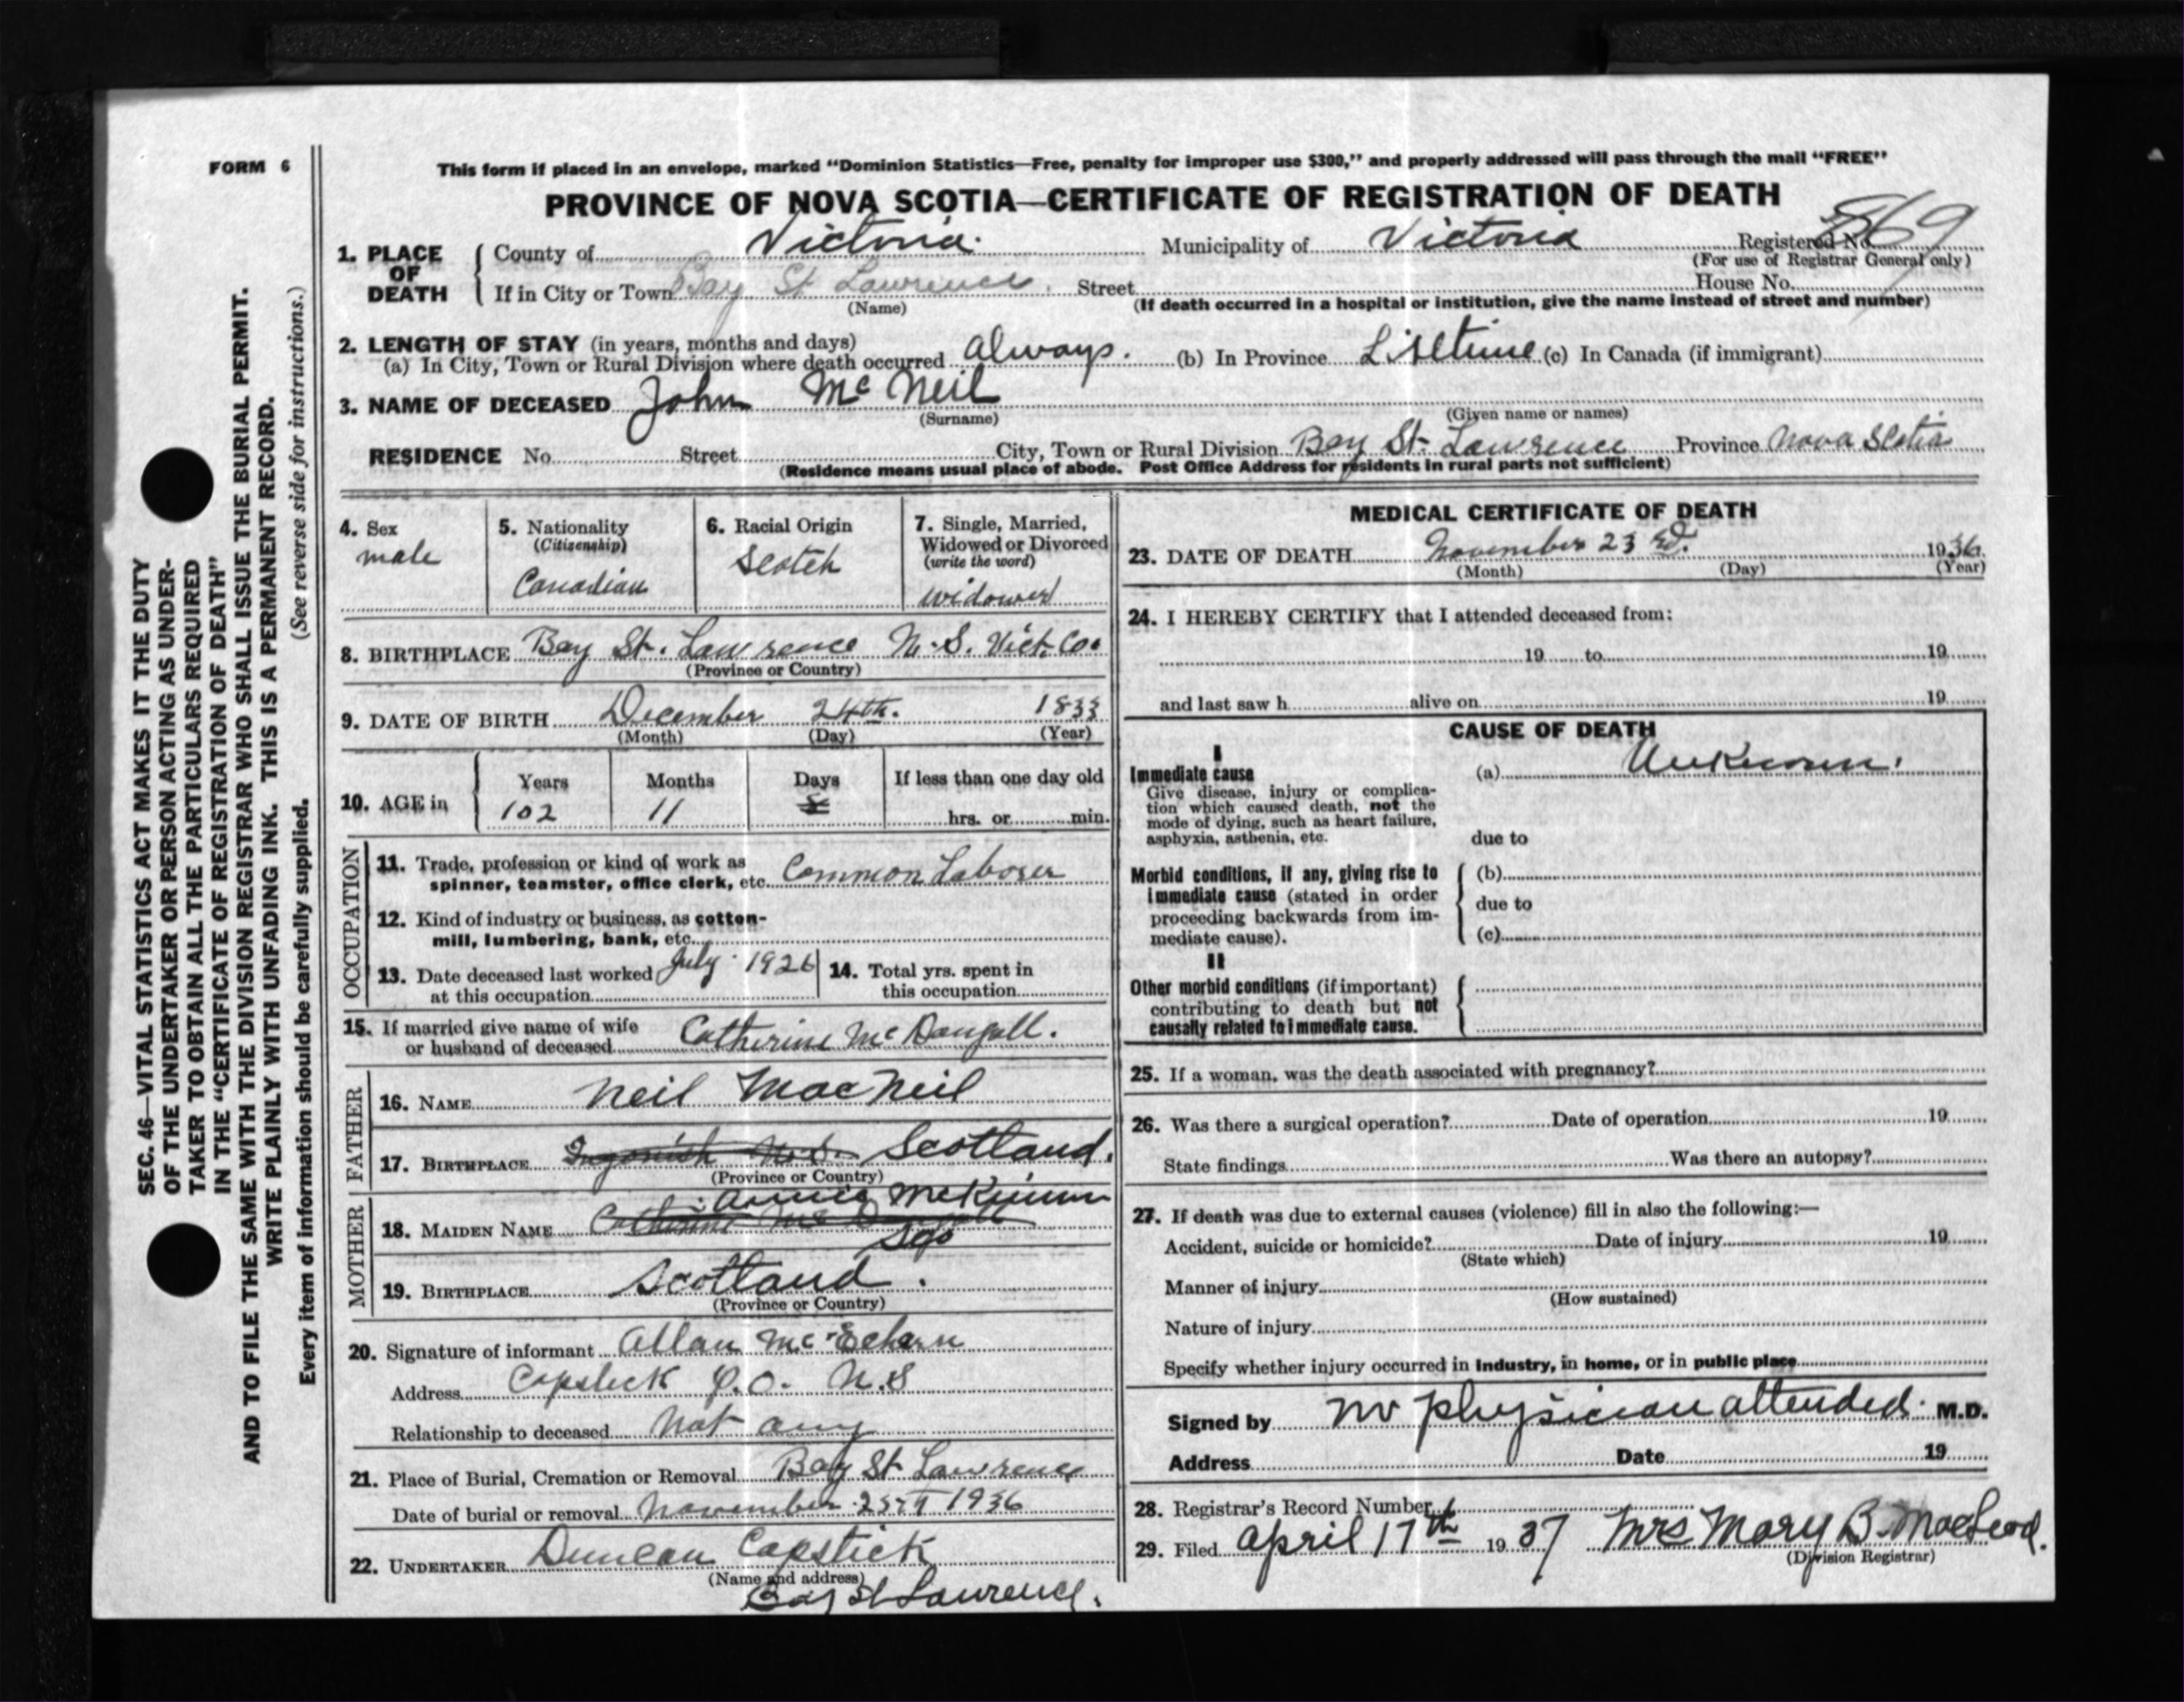 FORM 6
This form if placed in an envelope, marked “Dominion Statistics—Free, penalty for improper use $300,” and properly addressed will pass through the mail “FREE”
PROVINCE OF NOVA SCOTIA—CERTIFICATE OF REGISTRATION OF DEATH
1. PLACE OF DEATH County of Victoria. Municipality of Victoria Registered No. 869
(For use of Registrar General only)
If in City or Town Bay St Lawrence. Street House No.
(Name) (If death occurred in a hospital or institution, give the name instead of street and number)
2. LENGTH OF STAY (in years, months and days)
(a) In City, Town or Rural Division where death occurred always. (b) In Province Lifetime (c) In Canada (if immigrant)
3. NAME OF DECEASED John Mc Neil
(Surname) (Given name or names)
RESIDENCE No. Street City, Town or Rural Division Bay St. Lawrence Province Nova Scotia
(Residence means usual place of abode. Post Office Address for residents in rural parts not sufficient)
4. Sex
male
5. Nationality
(Citizenship)
Canadian
6. Racial Origin
Scotch
7. Single, Married,
Widowed or Divorced
(write the word)
widower
8. BIRTHPLACE Bay St. Lawrence N.S. Vict. Co.
(Province or Country)
9. DATE OF BIRTH December 24th. 1833
(Month) (Day) (Year)
10. AGE in
Years Months Days If less than one day old
102 11 hrs. or min.
OCCUPATION
11. Trade, profession or kind of work as
spinner, teamster, office clerk, etc. Common Laborer
12. Kind of industry or business, as cotton-
mill, lumbering, bank, etc.
13. Date deceased last worked July 1926
at this occupation
14. Total yrs. spent in
this occupation
15. If married give name of wife
or husband of deceased Catherine McDougall.
FATHER
16. NAME Neil MacNeil
17. BIRTHPLACE Ingonish N.S. Scotland.
(Province or Country)
MOTHER
Annie McKinnon
18. MAIDEN NAME Catherine McDougall
19. BIRTHPLACE Scotland.
(Province or Country)
20. Signature of informant Allan McEchern
Address Capstick P.O. N.S
Relationship to deceased Not any
21. Place of Burial, Cremation or Removal Bay St Lawrence
Date of burial or removal November 25th 1936
22. UNDERTAKER Duncan Capstick
(Name and address)
Bay St Lawrence.
MEDICAL CERTIFICATE OF DEATH
23. DATE OF DEATH November 23 rd. 1936
(Month) (Day) (Year)
24. I HEREBY CERTIFY that I attended deceased from:
19 to 19
and last saw h alive on 19
CAUSE OF DEATH
I
Immediate cause
Give disease, injury or complica-
tion which caused death, not the
mode of dying, such as heart failure,
asphyxia, asthenia, etc.
(a) Unknown.
due to
Morbid conditions, if any, giving rise to
immediate cause (stated in order
proceeding backwards from im-
mediate cause).
(b)
due to
(c)
II
Other morbid conditions (if important)
contributing to death but not
causally related to immediate cause.
25. If a woman, was the death associated with pregnancy?
26. Was there a surgical operation? Date of operation 19
State findings Was there an autopsy?
27. If death was due to external causes (violence) fill in also the following:—
Accident, suicide or homicide? Date of injury 19
(State which)
Manner of injury
(How sustained)
Nature of injury
Specify whether injury occurred in industry, in home, or in public place
Signed by no physician attended. M.D.
Address Date 19
28. Registrar's Record Number
29. Filed April 17th 1937 Mrs Mary B. MacLeod.
(Division Registrar)
SEC. 46—VITAL STATISTICS ACT MAKES IT THE DUTY
OF THE UNDERTAKER OR PERSON ACTING AS UNDER-
TAKER TO OBTAIN ALL THE PARTICULARS REQUIRED
IN THE “CERTIFICATE OF REGISTRATION OF DEATH”
AND TO FILE THE SAME WITH THE DIVISION REGISTRAR WHO SHALL ISSUE THE BURIAL PERMIT.
WRITE PLAINLY WITH UNFADING INK. THIS IS A PERMANENT RECORD.
(See reverse side for instructions.)
Every item of information should be carefully supplied.